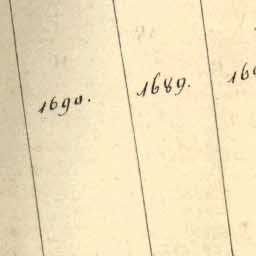 1690. 1689.